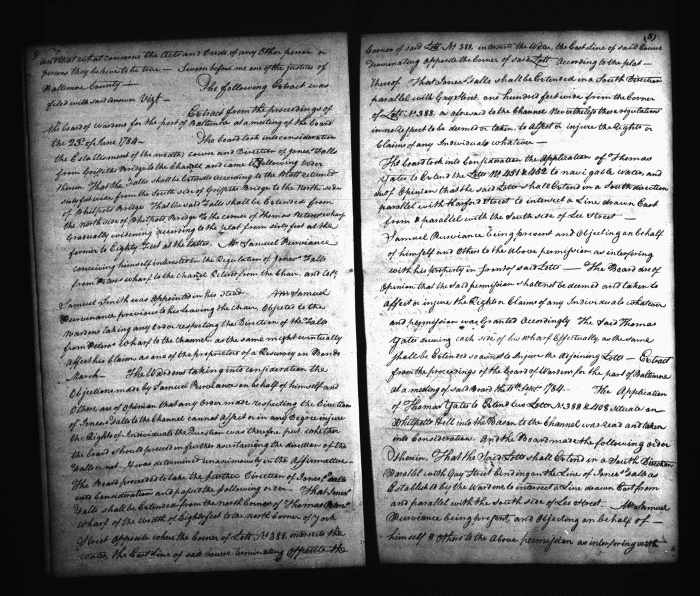 and that what concerns the Acts and Deeds of any Other person or
persons they believe to be true — Sworn before me one of the Justices of
Baltimore County — The following Extract was
filed with said answer Vizt —
Extract from the proceedings of
the board of wardens for the port of Baltimore at a meeting of the board
the 23d of June 1784 — The board took into consideration
the Establishment of the width, course and Direction of Jones's Falls
from Griffiths Bridge to the Channel and came to following order
therein That the Falls shall be Extended according to the Plat returned
sixty feet wide from the South side of Griffiths Bridge to the North side
of Philpotts Bridge That the said Falls shall be Extended from
the North side of Philpotts Bridge to the corner of Thomas Peters's wharf
Gradually widening according to the plat from sixty feet at the
former to Eighty Feet at the latter. Mr Samuel Purviance
conceiving himself interested in the Regulation of Jones's Falls
from Peters wharf to the Channel Retired from the Chair and Capt
Samuel Smith was Appointed in his Stead Mr Samuel
Purviance previous to his leaving the Chair, Objected to the
Wardens taking any order respecting the Direction of the Falls
from Peters's Wharf to the Channel as the same might eventually
affect his Claim as one of the proprietors of a Resurvey in
Marsh — The Wardens taking into consideration the
Objections made by Samuel Purviance on behalf of himself and
Others are of Opinion that any Order made respecting the Direction
of Jones's Falls to the Channel cannot affect or in any Degree injure
the Rights of Individuals the Question was therefore put whether
the board should proceed in further ascertaining the direction of the
Falls or not. It was determined unanimously in the Affirmative.
The Board proceeded to take the further Direction of Jones's Falls
into Consideration and passed the following order — That Jones's
Falls shall be Extended from the North Corner of Thomas Peters's
wharf of the Width of Eighty feet to the north Corner of York
Street Opposite where the Corner of Lott No 388, intersects the
water, the East Line of said Course terminating opposite the
(5)
Corner of said Lott No 388, intersects the Water, the East Line of said Course
Terminating opposite the Corner of said Lott According to the plat —
thereof That Jones's Falls shall be Extended in a South Direction
parallel with Gay Street, one hundred feet wide from the Corner
of Lott No 388, as aforesaid to the Channel Nevertheless these regulations
in no respect to be deemed or taken, to Affect or injure the Rights or
Claims of any Individuals whatever —
The board took into Consideration the Application of Thomas
Yates to Extend the Lotts No 451 & 452 to navigable water, and
are of Opinion that the said Lotts shall Extend in a South direction
parallel with Harford Street to intersect a Line drawn East
from & parallel with the South side of Lee Street —
Samuel Purviance being present and Objecting on behalf
of himself and Others to the Above permission as interfering
with his property in front of said Lotts — The Board are of
Opinion that the said permission shall not be deemed and taken to
affect or injure the Right or Claim of any Individuals whatever
and permission was Granted Accordingly The said Thomas
Yates owning each side of his Wharf Effectually as the same
shall be Extended so as not to Injure the Adjoining Lotts — Extract
from the proceedings of the Board of Wardens for the port of Baltimore
at a meeting of said Board the Sept. 1784. The Application
of Thomas Yates to Extend two Lotts No 388 & 408 situate on
Philpotts Hill into the Bason to the Channel was read and taken
into Consideration. And the Board made the following order
therein. That the Said Lotts shall Extend in a South Direction
Parallel with Gay Street binding on the Line of Jones's Falls as
Established by the Wardens to intersect a Line drawn East from
and parallel with the South side of Lee Street. Mr Samuel
Purviance being present, and Objecting on behalf of —
himself & Others to the Above permission as interfering with